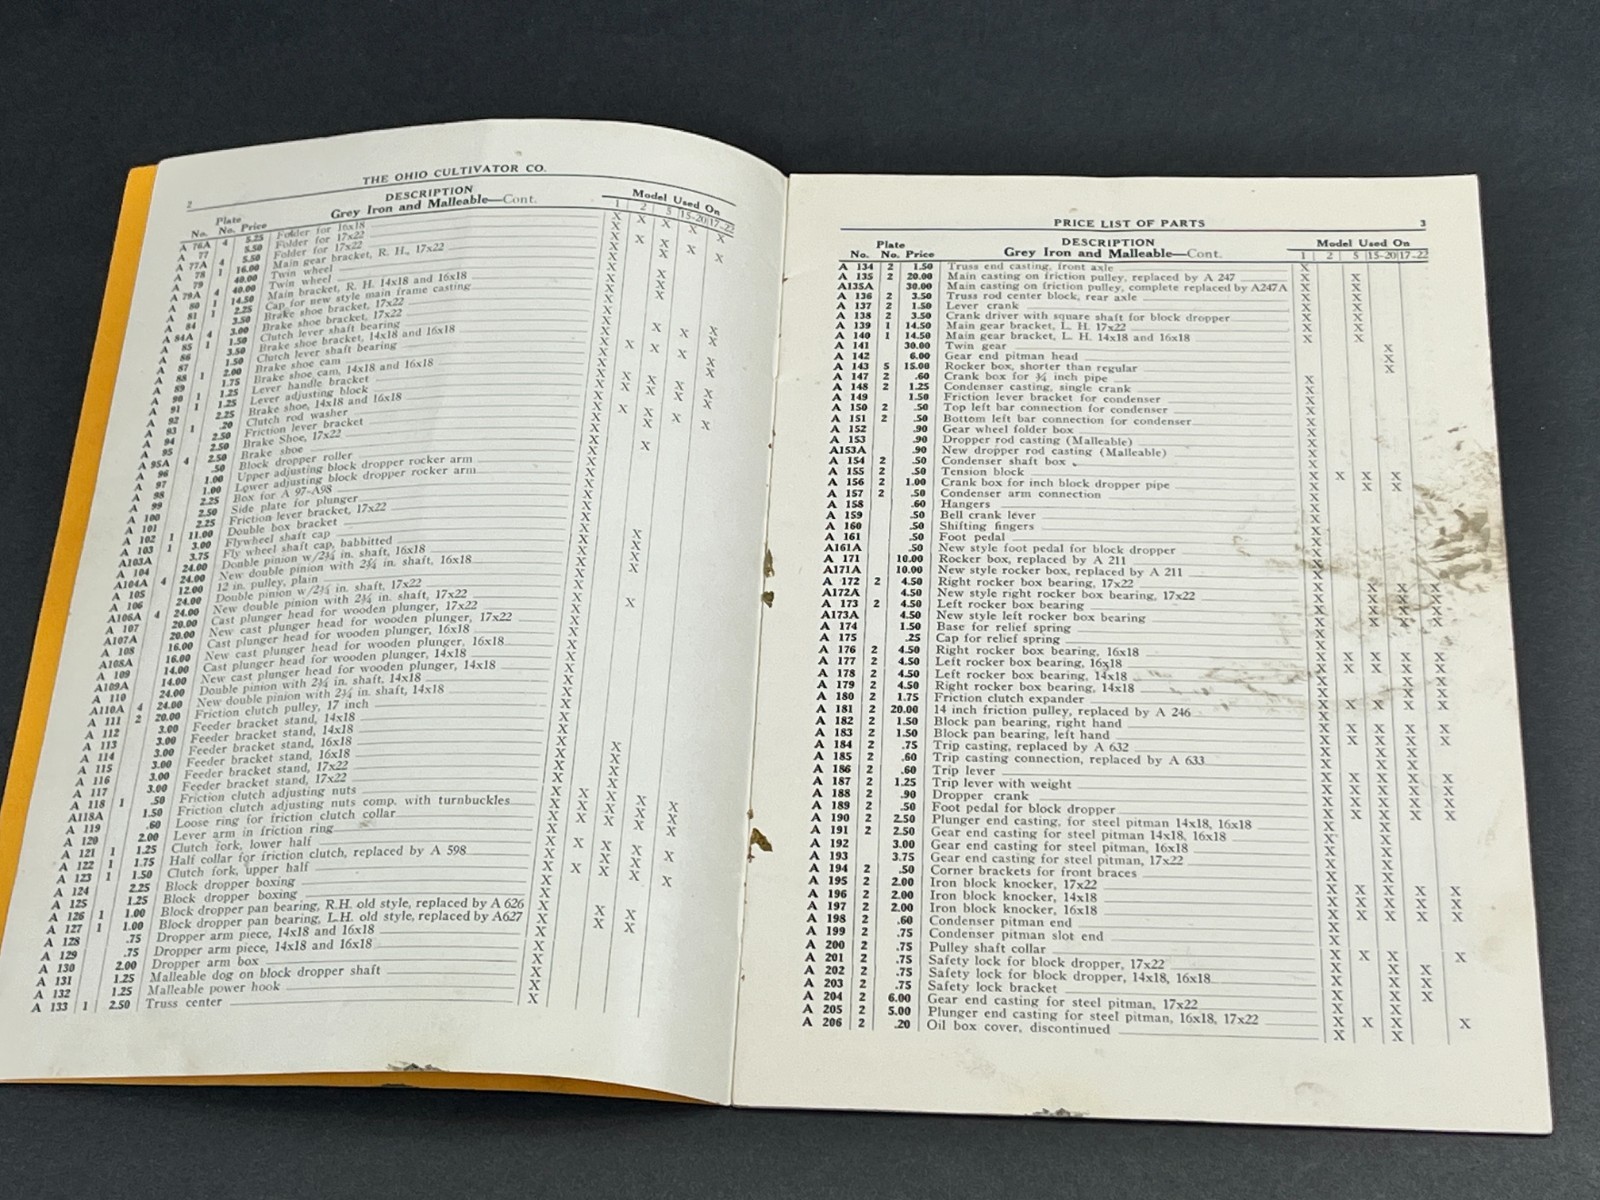 2
THE OHIO CULTIVATOR CO.
DESCRIPTION
Model Used On
Plate
No. No. Price Grey Iron and Malleable—Cont. 1 2 5 15-20 17-22
A 76A 4 5.25 Folder for 16x18
A 77 5.50 Folder for 17x22
A 77A 4 5.50 Folder for 17x22
A 78 1 16.00 Main gear bracket, R. H., 17x22
A 79 40.00 Twin wheel
A 79A 4 40.00 Twin wheel
A 80 1 14.50 Main bracket, R. H. 14x18 and 16x18
A 81 1 2.25 Cap for new style main frame casting
A 84 3.50 Brake shoe bracket, 17x22
A 84A 4 3.00 Brake shoe bracket, 17x22
A 85 1 1.50 Clutch lever shaft bearing
A 86 3.50 Brake shoe bracket, 14x18 and 16x18
A 87 1.50 Clutch lever shaft bearing
A 88 1 2.00 Brake shoe cam
A 89 1.75 Brake shoe cam, 14x18 and 16x18
A 90 1 1.25 Lever handle bracket
A 91 1 1.25 Lever adjusting block
A 92 2.25 Brake shoe, 14x18 and 16x18
A 93 1 .20 Clutch rod washer
A 94 2.50 Friction lever bracket
A 95 2.50 Brake Shoe, 17x22
A 95A 4 2.50 Brake shoe
A 96 .50 Block dropper roller
A 97 1.00 Upper adjusting block dropper rocker arm
A 98 1.00 Lower adjusting block dropper rocker arm
A 99 2.25 Box for A 97-A98
A 100 2.50 Side plate for plunger
A 101 2.25 Friction lever bracket, 17x22
A 102 1 11.00 Double box bracket
A 103 1 3.00 Flywheel shaft cap
A103A 3.75 Fly wheel shaft cap, babbitted
A 104 24.00 Double pinion w/2¾ in. shaft, 16x18
A104A 4 24.00 New double pinion with 2¾ in. shaft, 16x18
A 105 12.00 12 in. pulley, plain
A 106 24.00 Double pinion w/2¾ in. shaft, 17x22
A106A 4 24.00 New double pinion with 2¾ in. shaft, 17x22
A 107 20.00 Cast plunger head for wooden plunger, 17x22
A107A 20.00 New cast plunger head for wooden plunger, 17x22
A 108 16.00 Cast plunger head for wooden plunger, 16x18
A108A 16.00 New cast plunger head for wooden plunger, 16x18
A 109 14.00 Cast plunger head for wooden plunger, 14x18
A109A 14.00 New cast plunger head for wooden plunger, 14x18
A 110 24.00 Double pinion with 2¾ in. shaft, 14x18
A110A 4 24.00 New double pinion with 2¾ in. shaft, 14x18
A 111 2 20.00 Friction clutch pulley, 17 inch
A 112 3.00 Feeder bracket stand, 14x18
A 113 3.00 Feeder bracket stand, 14x18
A 114 3.00 Feeder bracket stand, 16x18
A 115 3.00 Feeder bracket stand, 16x18
A 116 3.00 Feeder bracket stand, 17x22
A 117 3.00 Feeder bracket stand, 17x22
A 118 1 .50 Friction clutch adjusting nuts
A118A 1.50 Friction clutch adjusting nuts comp. with turnbuckles
A 119 .60 Loose ring for friction clutch collar
A 120 2.00 Lever arm in friction ring
A 121 1 1.25 Clutch fork, lower half
A 122 1 1.75 Half collar for friction clutch, replaced by A 598
A 123 1 1.50 Clutch fork, upper half
A 124 2.25 Block dropper boxing
A 125 1.25 Block dropper boxing
A 126 1 1.00 Block dropper pan bearing, R.H. old style, replaced by A 626
A 127 1 1.00 Block dropper pan bearing, L.H. old style, replaced by A627
A 128 .75 Dropper arm piece, 14x18 and 16x18
A 129 .75 Dropper arm piece, 14x18 and 16x18
A 130 2.00 Dropper arm box
A 131 1.25 Malleable dog on block dropper shaft
A 132 1.25 Malleable power hook
A 133 1 2.50 Truss center
PRICE LIST OF PARTS 3
DESCRIPTION
Model Used On
Plate
No. No. Price Grey Iron and Malleable—Cont. 1 2 5 15-20 17-22
A 134 2 1.50 Truss end casting, front axle
A 135 2 20.00 Main casting on friction pulley, replaced by A 247
A135A 30.00 Main casting on friction pulley, complete replaced by A247A
A 136 2 3.50 Truss rod center block, rear axle
A 137 2 1.50 Lever crank
A 138 2 3.50 Crank driver with square shaft for block dropper
A 139 1 14.50 Main gear bracket, L. H. 17x22
A 140 1 14.50 Main gear bracket, L. H. 14x18 and 16x18
A 141 30.00 Twin gear
A 142 6.00 Gear end pitman head
A 143 5 15.00 Rocker box, shorter than regular
A 147 2 .60 Crank box for ¾ inch pipe
A 148 2 1.25 Condenser casting, single crank
A 149 1.50 Friction lever bracket for condenser
A 150 2 .50 Top left bar connection for condenser
A 151 2 .50 Bottom left bar connection for condenser
A 152 .90 Gear wheel folder box
A 153 .90 Dropper rod casting (Malleable)
A153A .90 New dropper rod casting (Malleable)
A 154 2 .50 Condenser shaft box
A 155 2 .50 Tension block
A 156 2 1.00 Crank box for inch block dropper pipe
A 157 2 .50 Condenser arm connection
A 158 .60 Hangers
A 159 .50 Bell crank lever
A 160 .50 Shifting fingers
A 161 .50 Foot pedal
A161A .50 New style foot pedal for block dropper
A 171 10.00 Rocker box, replaced by A 211
A171A 10.00 New style rocker box, replaced by A 211
A 172 2 4.50 Right rocker box bearing, 17x22
A172A 4.50 New style right rocker box bearing, 17x22
A 173 2 4.50 Left rocker box bearing
A173A 4.50 New style left rocker box bearing
A 174 1.50 Base for relief spring
A 175 .25 Cap for relief spring
A 176 2 4.50 Right rocker box bearing, 16x18
A 177 2 4.50 Left rocker box bearing, 16x18
A 178 2 4.50 Left rocker box bearing, 14x18
A 179 2 4.50 Right rocker box bearing, 14x18
A 180 2 1.75 Friction clutch expander
A 181 2 20.00 14 inch friction pulley, replaced by A 246
A 182 2 1.50 Block pan bearing, right hand
A 183 2 1.50 Block pan bearing, left hand
A 184 2 .75 Trip casting, replaced by A 632
A 185 2 .60 Trip casting connection, replaced by A 633
A 186 2 .60 Trip lever
A 187 2 1.25 Trip lever with weight
A 188 2 .90 Dropper crank
A 189 2 .50 Foot pedal for block dropper
A 190 2 2.50 Plunger end casting, for steel pitman 14x18, 16x18
A 191 2 2.50 Gear end casting for steel pitman 14x18, 16x18
A 192 3.00 Gear end casting for steel pitman, 16x18
A 193 3.75 Gear end casting for steel pitman, 17x22
A 194 2 .50 Corner brackets for front braces
A 195 2 2.00 Iron block knocker, 17x22
A 196 2 2.00 Iron block knocker, 14x18
A 197 2 2.00 Iron block knocker, 16x18
A 198 2 .60 Condenser pitman end
A 199 2 .75 Condenser pitman slot end
A 200 2 .75 Pulley shaft collar
A 201 2 .75 Safety lock for block dropper, 17x22
A 202 2 .75 Safety lock for block dropper, 14x18, 16x18
A 203 2 .75 Safety lock bracket
A 204 2 6.00 Gear end casting for steel pitman, 17x22
A 205 2 5.00 Plunger end casting for steel pitman, 16x18, 17x22
A 206 2 .20 Oil box cover, discontinued